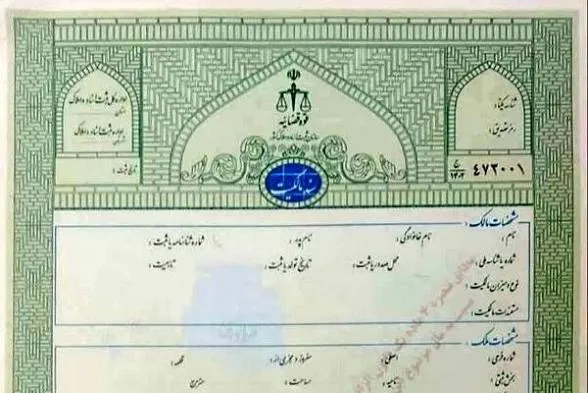 قوه قضائیه
سازمان ثبت اسناد و املاک کشور
اداره کل ثبت اسناد و املاک
استان
اداره ثبت اسناد و املاک
تاریخ ثبت:
شناسه یکتا:
رمز تصدیق:
سند مالکیت
۴۷۳۰۰۱
مشخصات مالک:
نام: نام خانوادگی: نام پدر: شماره شناسنامه یا ثبت:
شماره یا شناسه ملی: محل صدور یا ثبت: تاریخ تولد یا ثبت: تابعیت:
نوع و میزان مالکیت:
مستندات مالکیت:
مشخصات ملک:
شماره فرعی: اصلی: مفروز و مجزی از: قطعه:
بخش ثبتی: ناحیه: مساحت: مترمربع